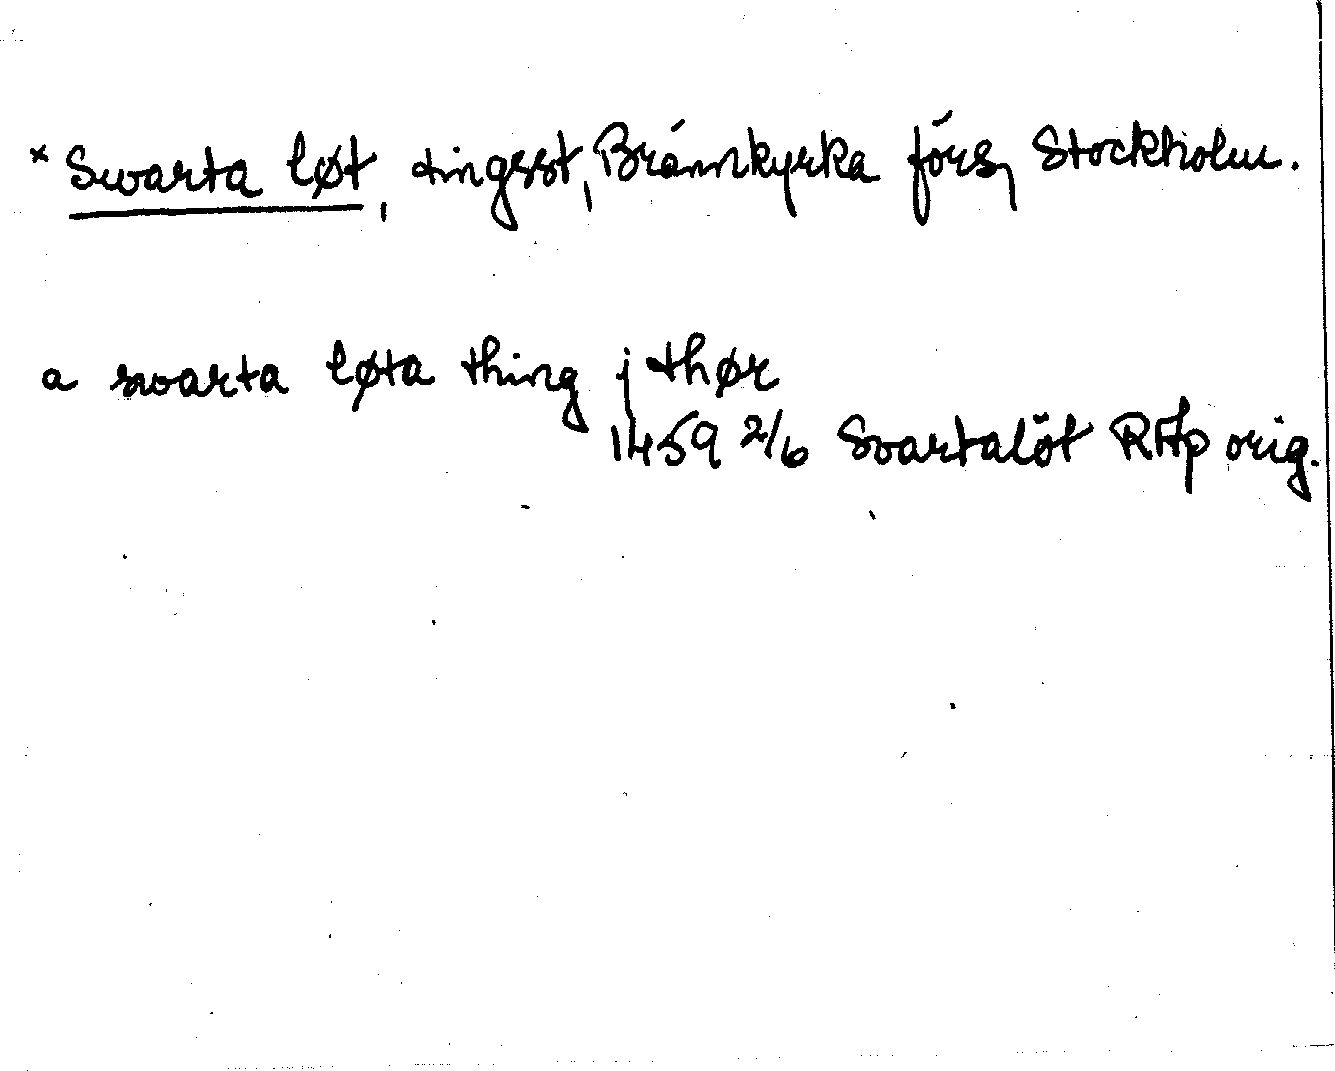 × Swarta løt, tingsst, Brännkyrka förs, Stockholm.
a swarta løta thing j thør
1459 2/6 Svartalöt RAp orig.